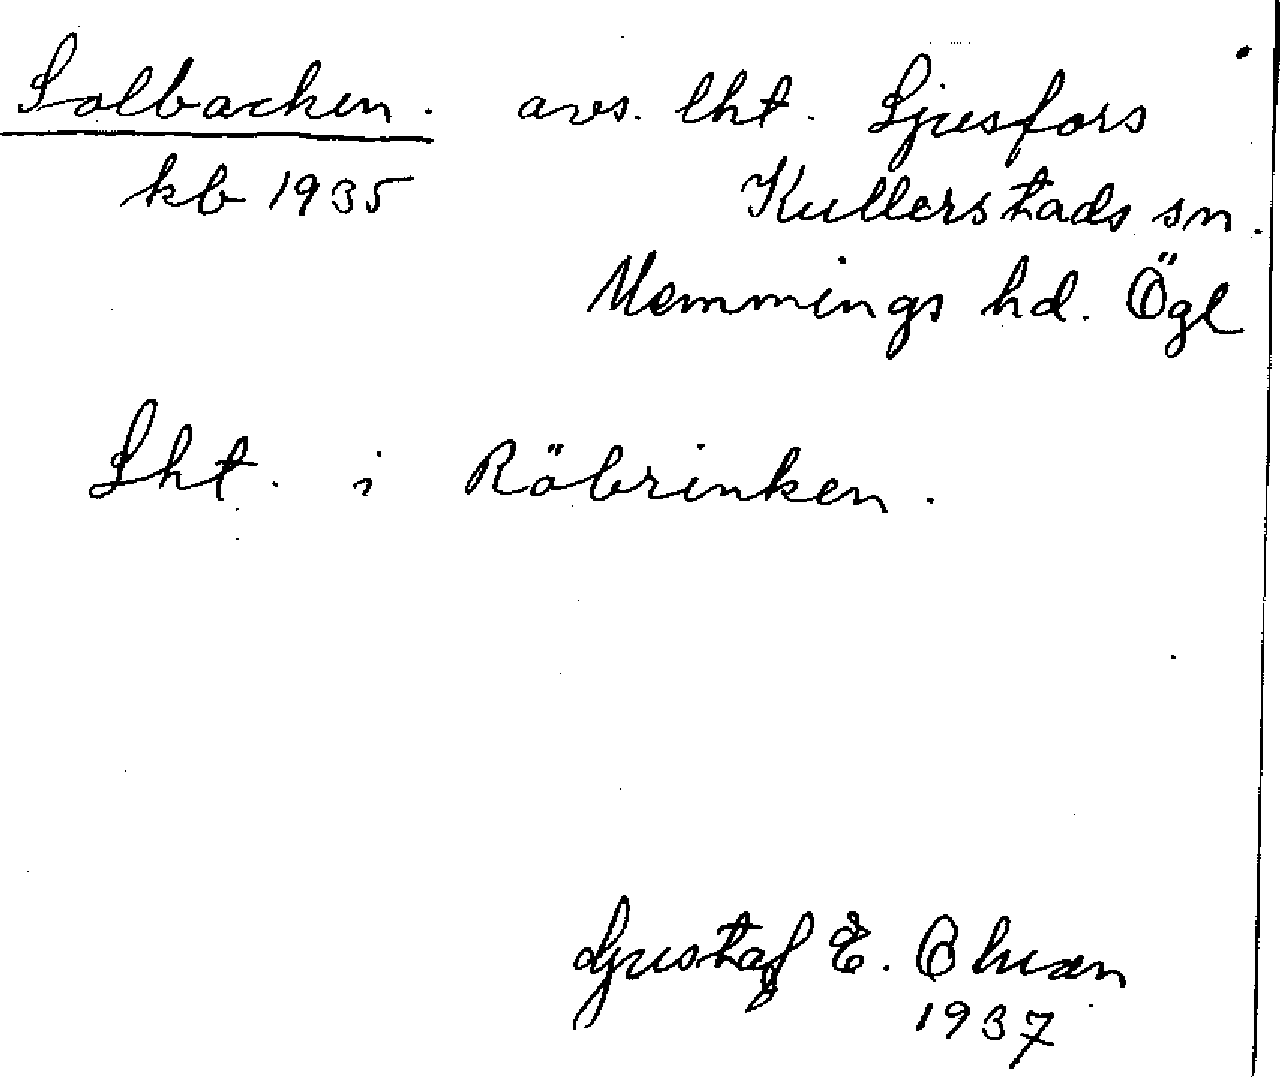 Solbacken. avs. lht. Ljusfors
kb 1935 Kullerstads sn.
Memmings hd. Ögl
Lht. i Röbrinken.
Gustaf E.
1937